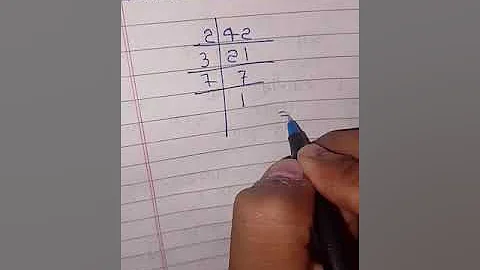 2 42
3 21
7 7
1
=